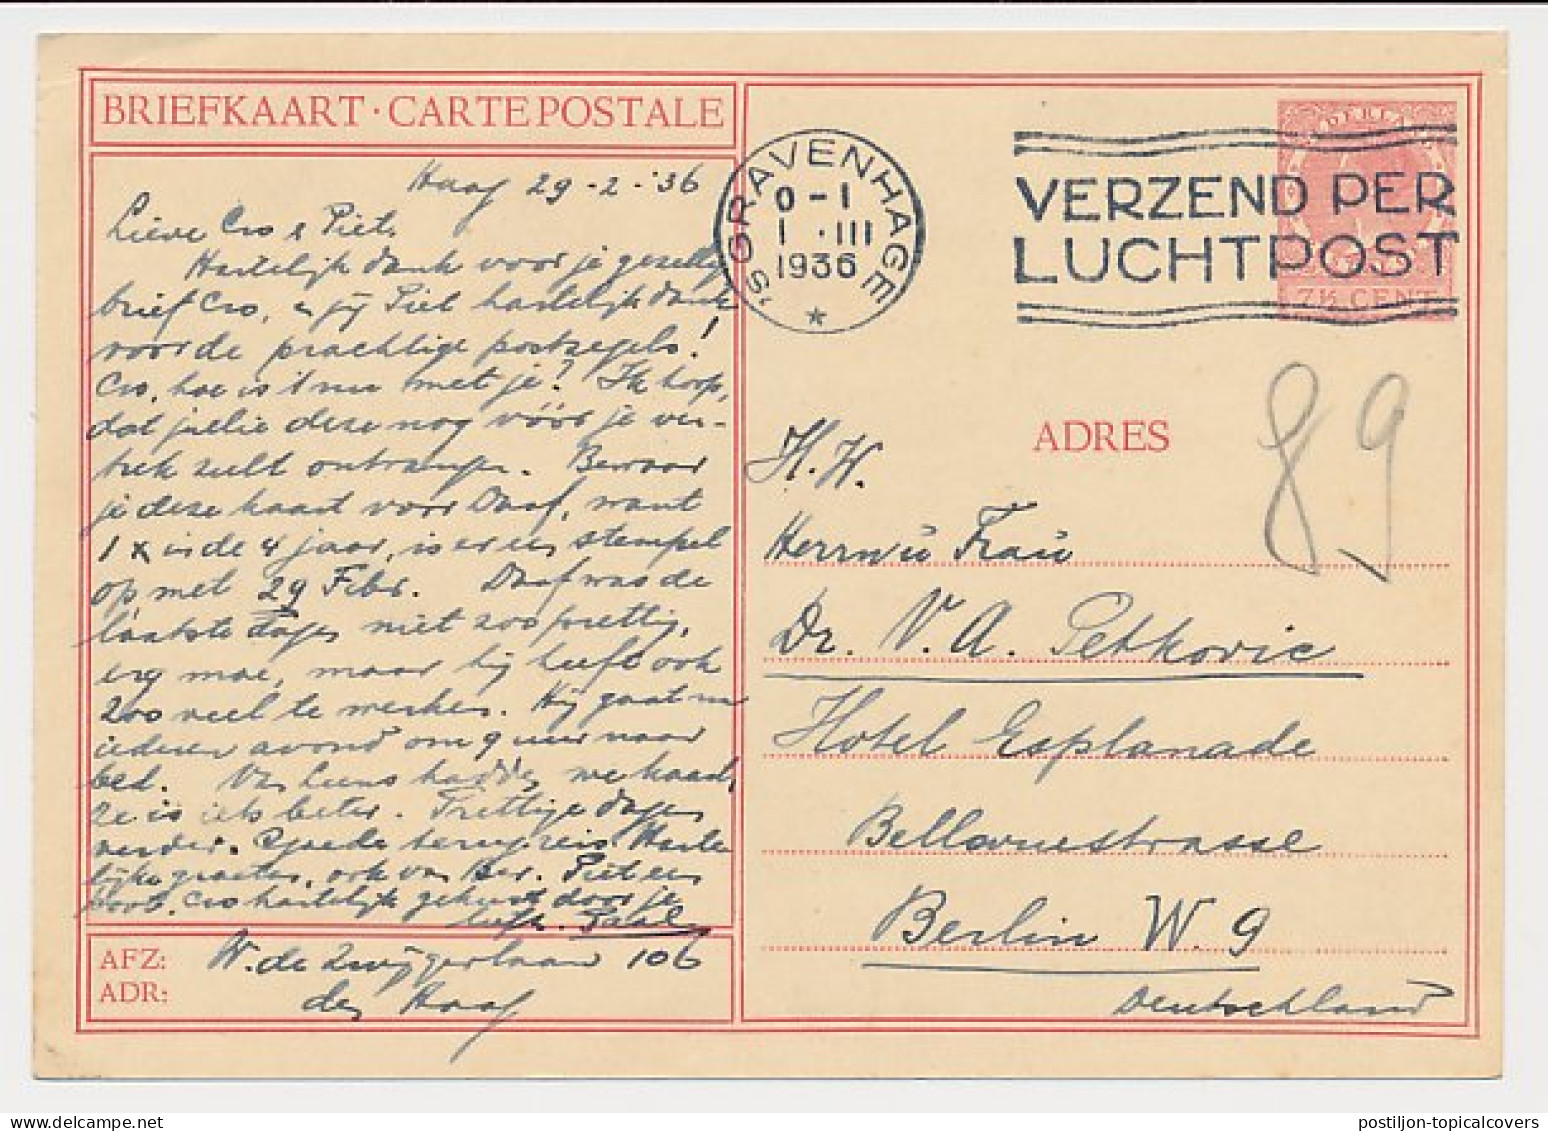 BRIEFKAART · CARTE POSTALE
Haag 29-2-'36
Lieve Cro & Piet,
Hartelijk dank voor je gezellige
brief Cro, & jij Piet hartelijk dank
voor de prachtige postzegels!
Cro, hoe is 't nu met je? Ik hoop,
dat jullie deze nog vóór je ver-
trek zult ontvangen. Bewaar
je deze kaart voor Daaf, want
1 x in de 4 jaar, is er een stempel
op met 29 Febr. Daaf was de
laatste dagen niet zoo prettig,
erg moe, maar hij heeft ook
zoo veel te werken. Hij gaat nu
iederen avond om 9 uur naar
bed. Van hadden we kaart,
ze is iets beter. Prettige dagen
verder. Goede terugreis. Harte
lijke groeten, ook van Piet een
poot. Cro hartelijk gekust door je
liefh.
AFZ: W. de Zwijgerlaan 106
ADR: den Haag
'S GRAVENHAGE
0-1
1 ·III
1936
VERZEND PER
LUCHTPOST
NEDERLAND
7½ CENT
89
ADRES
H. W.
Herrn u Frau
Dr. V. A. Petkovic
Hotel Esplanade
Bellevuestrasse
Berlin W. 9
Deutschland
postiljon-topicalcovers